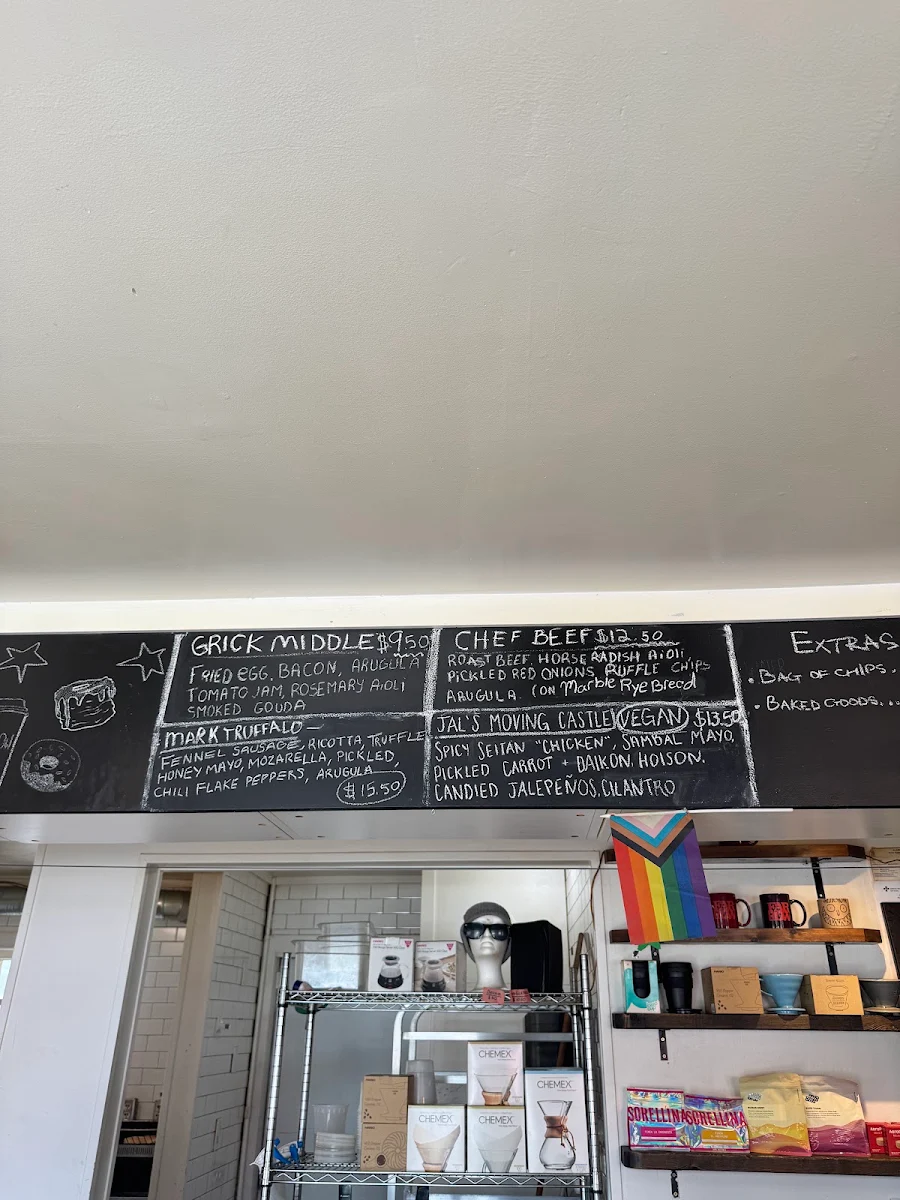 GRICK MIDDLE $9.50
FRIED EGG, BACON, ARUGULA
TOMATO JAM, ROSEMARY AiOLi
SMOKED GOUDA
MARK TRUFFALO —
FENNEL SAUSAGE, RICOTTA, TRUFFLE
HONEY MAYO, MOZARELLA, PICKLED,
CHILI FLAKE PEPPERS, ARUGULA
$15.50
CHEF BEEF $12.50
ROAST BEEF, HORSE RADISH AiOli
PICKLED RED ONIONS, RUFFLE CHiPS
ARUGULA. (ON Marble Rye Bread
JAL'S MOVING CASTLE VEGAN $13.50
SPICY SEITAN "CHICKEN", SAMBAL MAYO,
PICKLED CARROT + DAIKON, HOISON.
CANDIED JALEPEÑOS, CILANTRO
EXTRAS
• BAG OF CHIPS.
• BAKED GOODS...
CHEMEX
CHEMEX
CHEMEX
CHEMEX
SORELLINA
SORELLINA